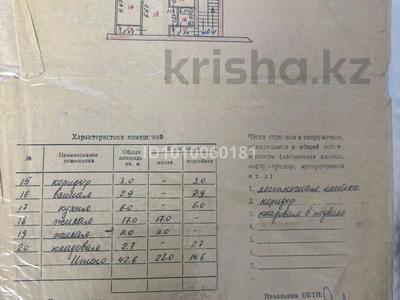 krisha.kz
ID1010060181
Характеристика помещений
№ Наименование помещения Общая площадь кв. м. жилая подсобная
15 коридор 3.0 – 3.0
16 ванная 2.9 – 2.9
17 кухня 6.0 – 6.0
18 жилая 17.0 17.0 –
19 жилая 11.0 11.0 –
20 кладовая 2.7 – 2.7
Итого 42.6 28.0 14.6
Части строения и сооружения,
находящиеся в общей собст-
венности (лестничная клетка,
лифт, коридор, мусоропровод
и т. д.)
1. лестничная клетка
2. коридор
3. кладовая в подвале
4.
5.
6.
7.
Начальник ОБТИ: